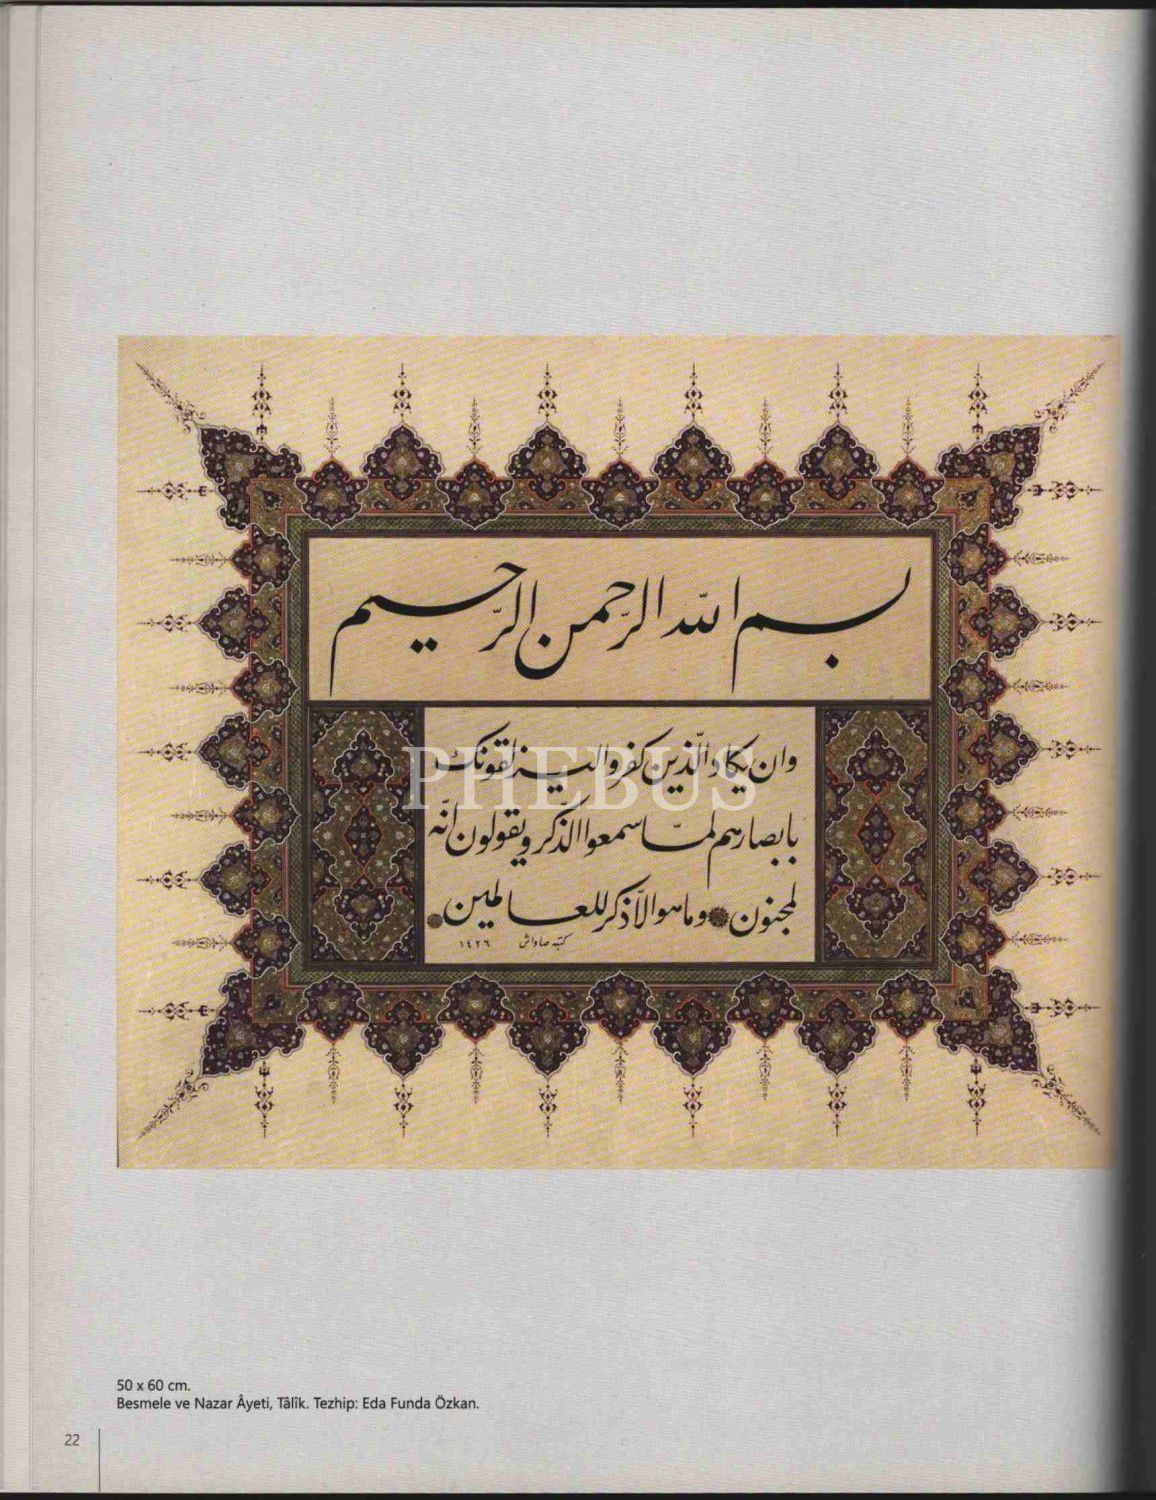 بسم الله الرحمن الرحيم
وان يكاد الذين كفروا ليزلقونك
بابصارهم لمّا سمعوا الذكر ويقولون انّه
لمجنون وما هو الّا ذكر للعالمين
كتبه صاواش ١٤٢٦
PHEBUS
50 x 60 cm.
Besmele ve Nazar Âyeti, Tâlîk. Tezhip: Eda Funda Özkan.
22